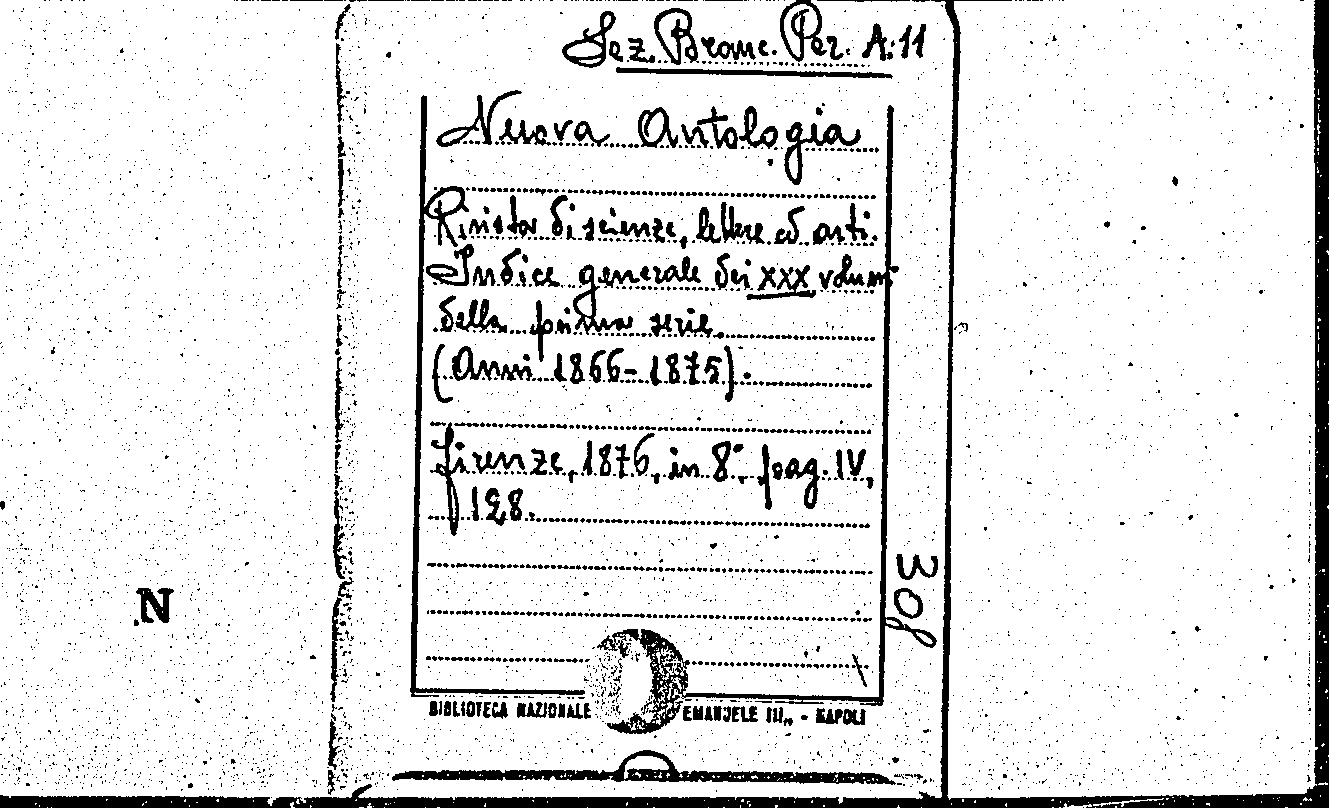 Sez. Branc. Per. A.11
Nuova Antologia
Rivista di scienze, lettere ed arti.
Indice generale dei XXX volumi
della prima serie.
(Anni 1866-1875).
Firenze, 1876, in 8°, pag. IV,
128.
308
N
BIBLIOTECA NAZIONALE EMANUELE III„ - NAPOLI